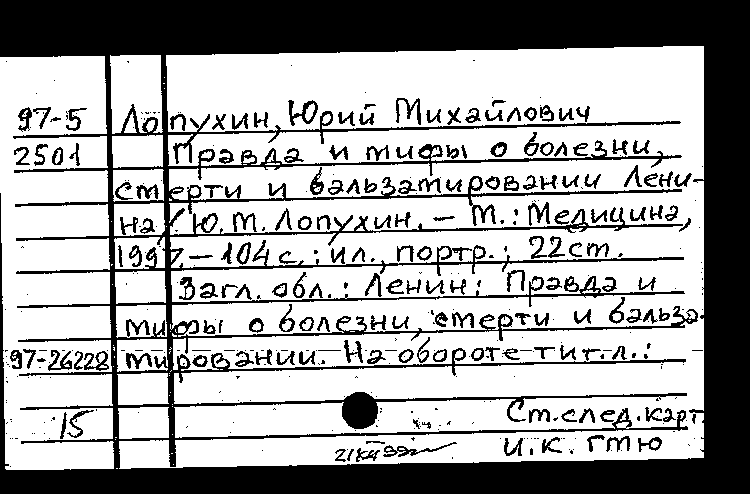 97-5 Лопухин, Юрий Михайлович
2501 Правда и мифы о болезни,
смерти и бальзамировании Лени-
на / Ю.М. Лопухин. – М.: Медицина,
1997. – 104 с.: ил., портр.; 22 см.
Загл. обл.: Ленин: Правда и
мифы о болезни, смерти и бальза-
97-26228 мировании. На обороте тит.л.:
15 См. след. карт.
И.К. ГМЮ